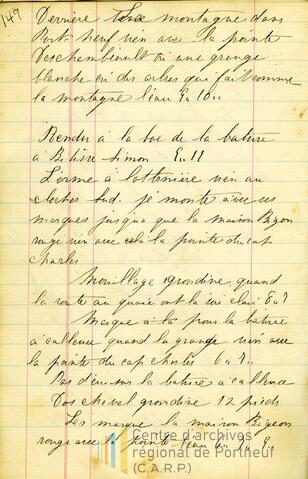 149
Derrière montagne dans
Port-neuf vien avec la pointe
Deschembeault où une grange
blanche où des arbes qui fait comme
la montagne l'eau En 10..
Rendu à la boe de la bature
à Simon En 11
L'orme à lotbinière vien au
clocher Sud. je monte avec ses
marques jusqua que la maison Bigon
rouge vien avec la pointe du cap
Charles
Mouillage grondine quand
la route au quaie ont la voi clair En 7
Marque à la pour la bature
à cailleux quand la grange vien avec
la pointe du cap Charles 6 à 7..
Pas d'eau sur la bature à cailleux
Dos cheval grondine 12 pieds
Les marque la maison Bigeon
rouge avec la pointe l'eau
Centre d'archives
régional de Portneuf
(C.A.R.P.)